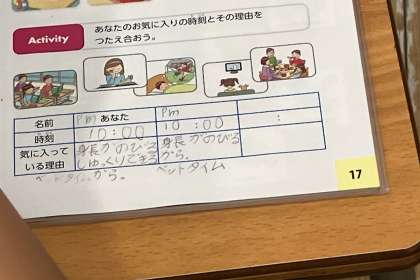 Activity
あなたのお気に入りの時刻とその理由を
つたえ合おう。
名前 Pm あなた Pm
時刻 10:00 10:00 :
気に入って 身長がのびる 身長がのびる
いる理由 じゅっくりできる から。
ベットタイムから。 ベットタイム
17